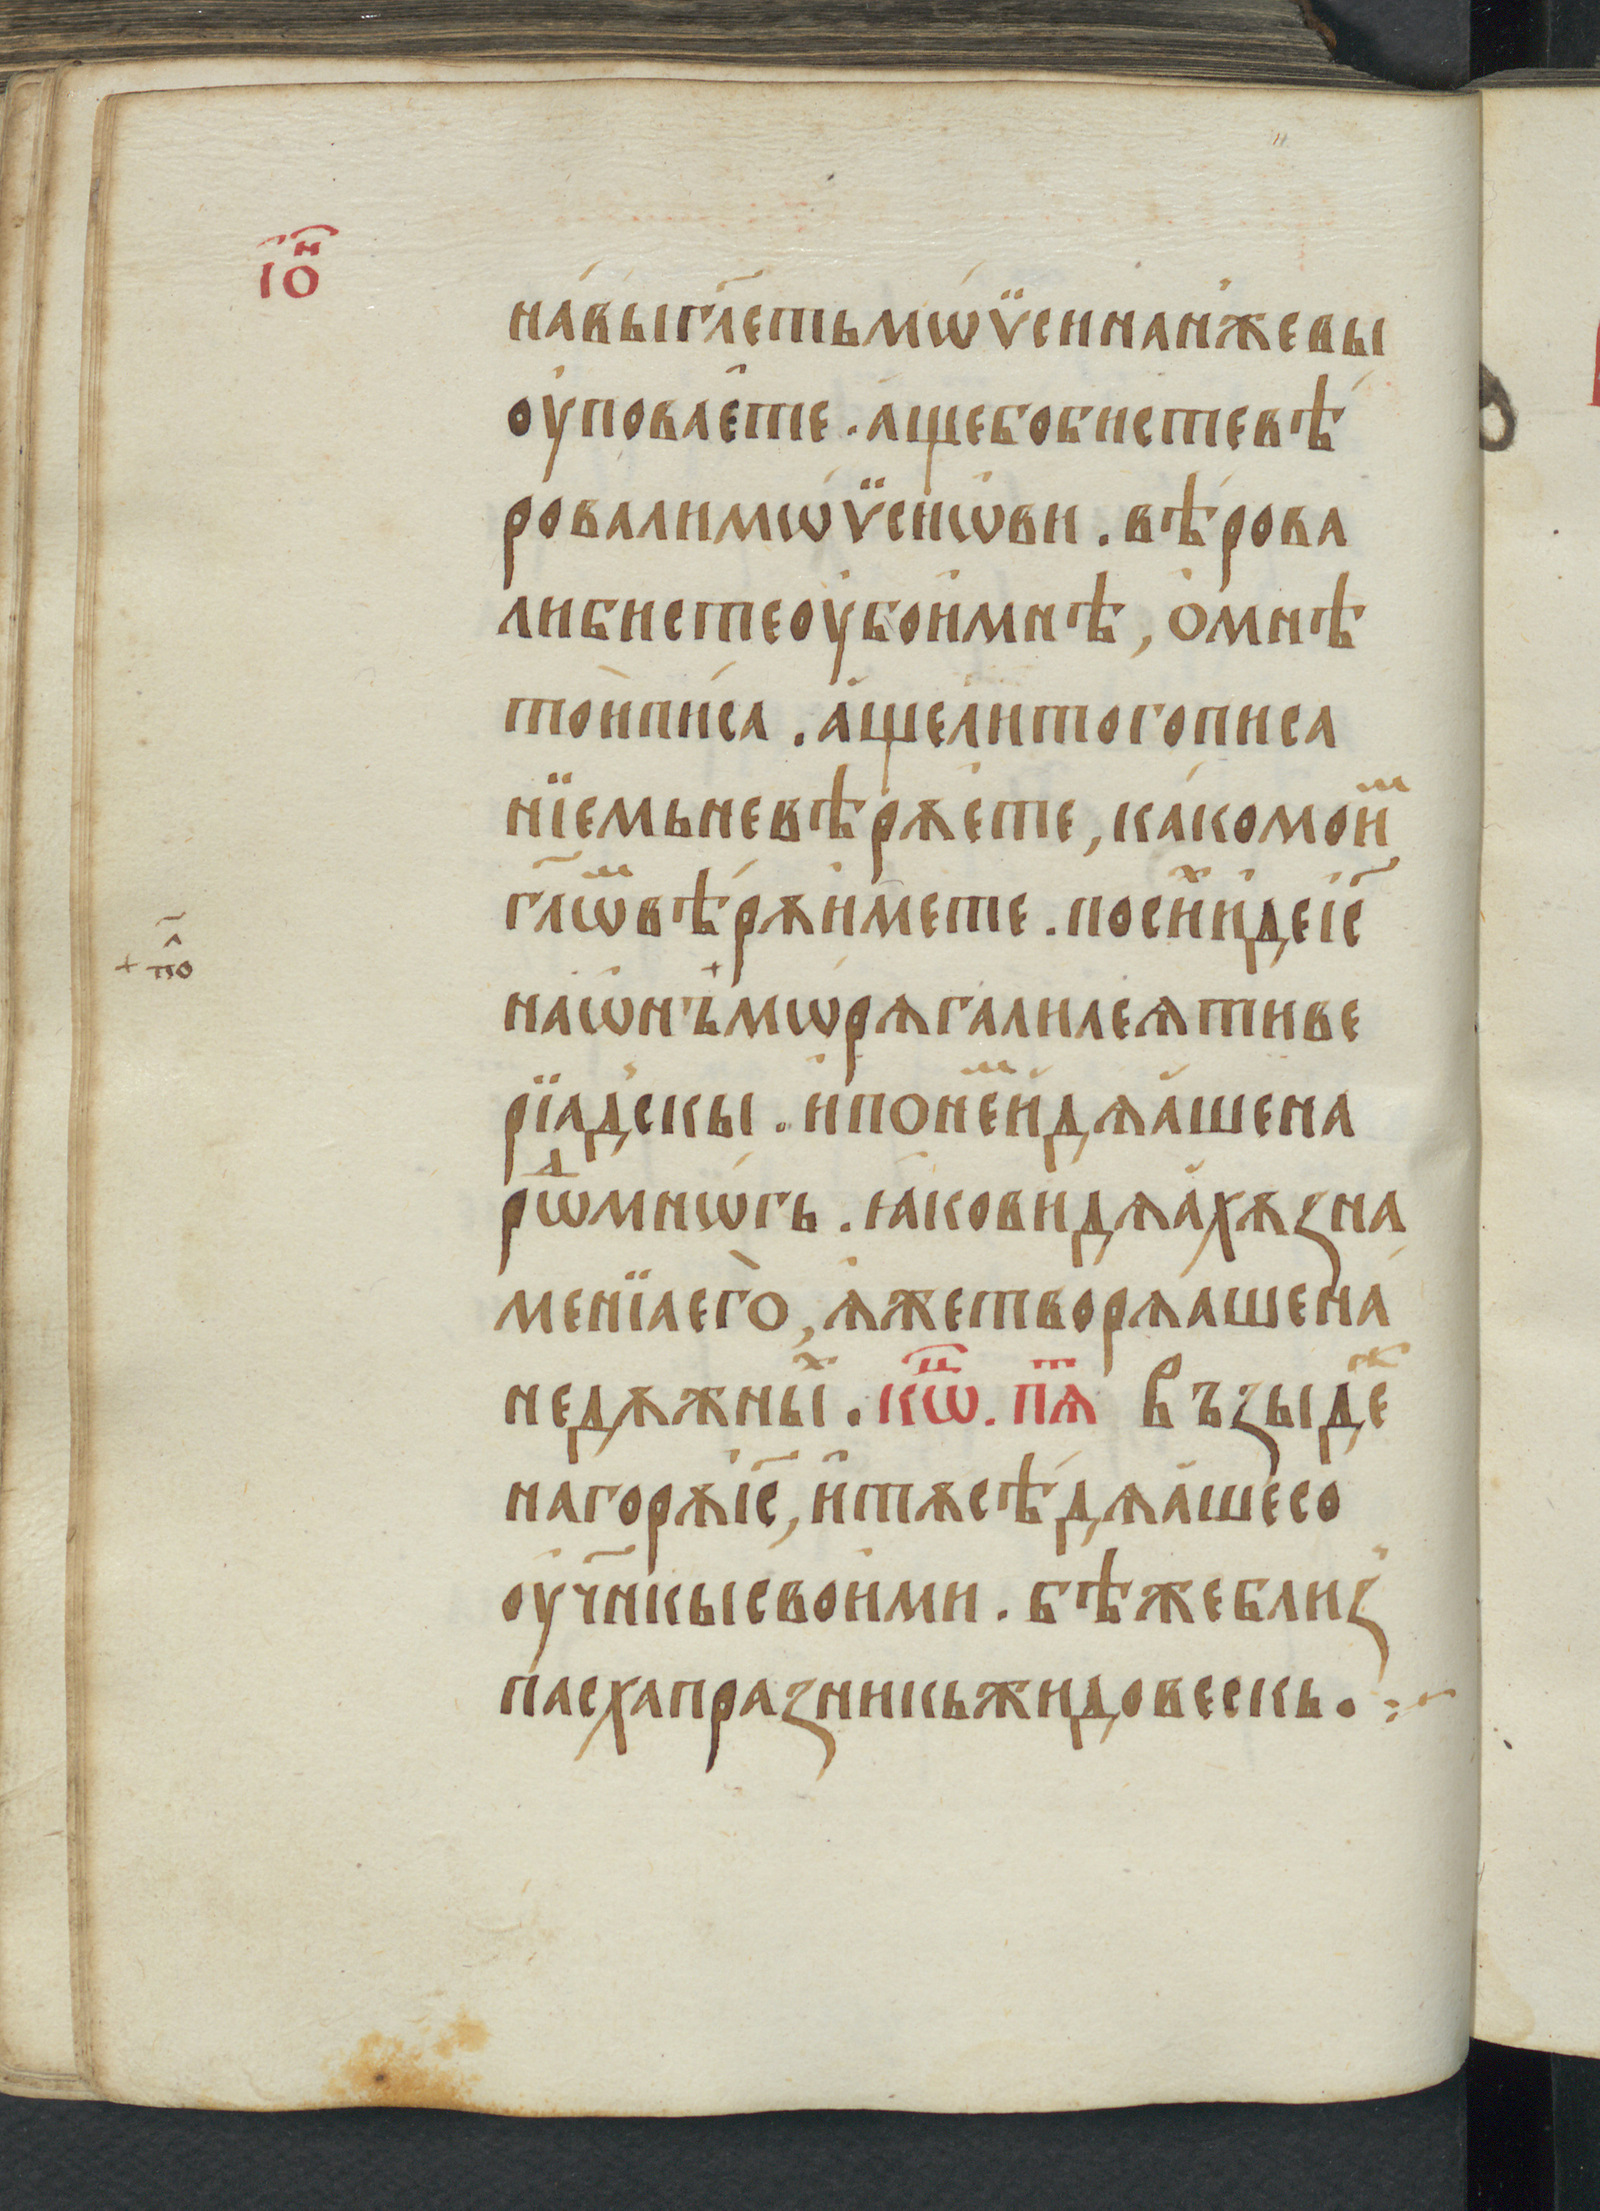 іѡ҃ⷩ
на́вы гл҃еть мѡ́ѵ̈си на н҆же вы
оу҆поваѐте . а́ще бо бисте вѣ́
ровали мѡ́ѵ̈си҆ѡви . вѣ́рова
ли бисте оу҆бо и҆ мнѣ , ѻ҆ мнѣ
то̀ и҆ пи́са . а҆́ще ли того писа
нїемь не вѣ́рꙋ҆ете , ка́ко мои̑ⷨ
гл҃ѡⷨ вѣ́рѫ и҆мете . по си́ⷯ и҆де і҆с҃
на ѡ҆нъ + мѡ́рѧ галилеѧ тиве
рїа́дскы . и҆ по не́ⷨ и҆дѧ́а҆ше на
рѡ̑ⷣ мнѡ́гь . ꙗ҆́ко видѧ́а҆хѫ зна
менїа его̀ , ꙗ҆же творѧ́аше на́
недѫжны́ⷯ . кѡⷰ҇ . пѧⷮ҇ Възы́де жⷤ
на горѫ і҆с҃ , и҆ тѫ сѣ́дѧа҆ше со
оу҆ч҃нкы свои҆ми . бѣ же близ̾
па́сха празникь жидовескь . :~
+ по̑